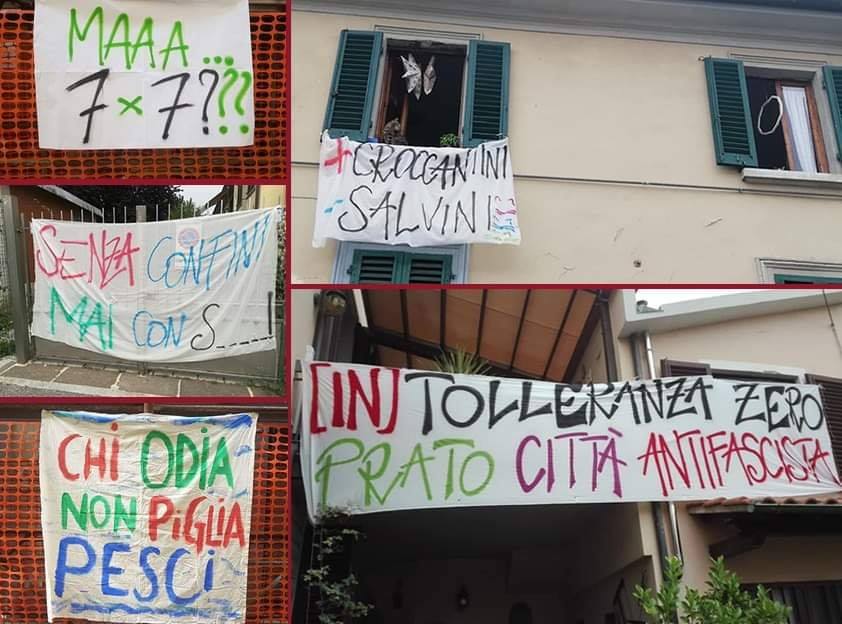 MAAA...
7x7???
+CROCCANTINI
-SALVINI
SENZA CONFINI
MAI CON S_____!
[IN]TOLLERANZA ZERO
PRATO CITTÀ ANTIFASCISTA
CHI ODIA
NON PIGLIA
PESCI